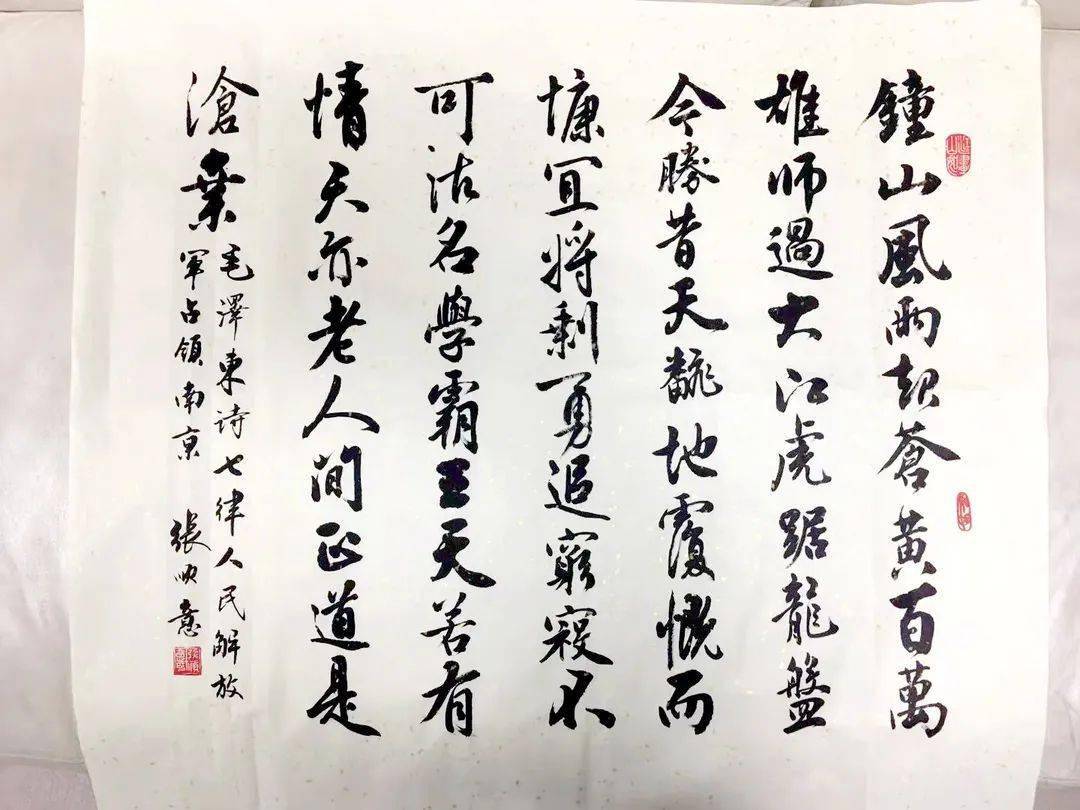 鐘山風雨起蒼黃百萬
雄師過大江虎踞龍盤
今勝昔天翻地覆慨而
慷宜將剩勇追窮寇不
可沽名學霸王天若有
情天亦老人間正道是
滄桒
毛澤東诗七律人民解放
軍占領南京
張順意